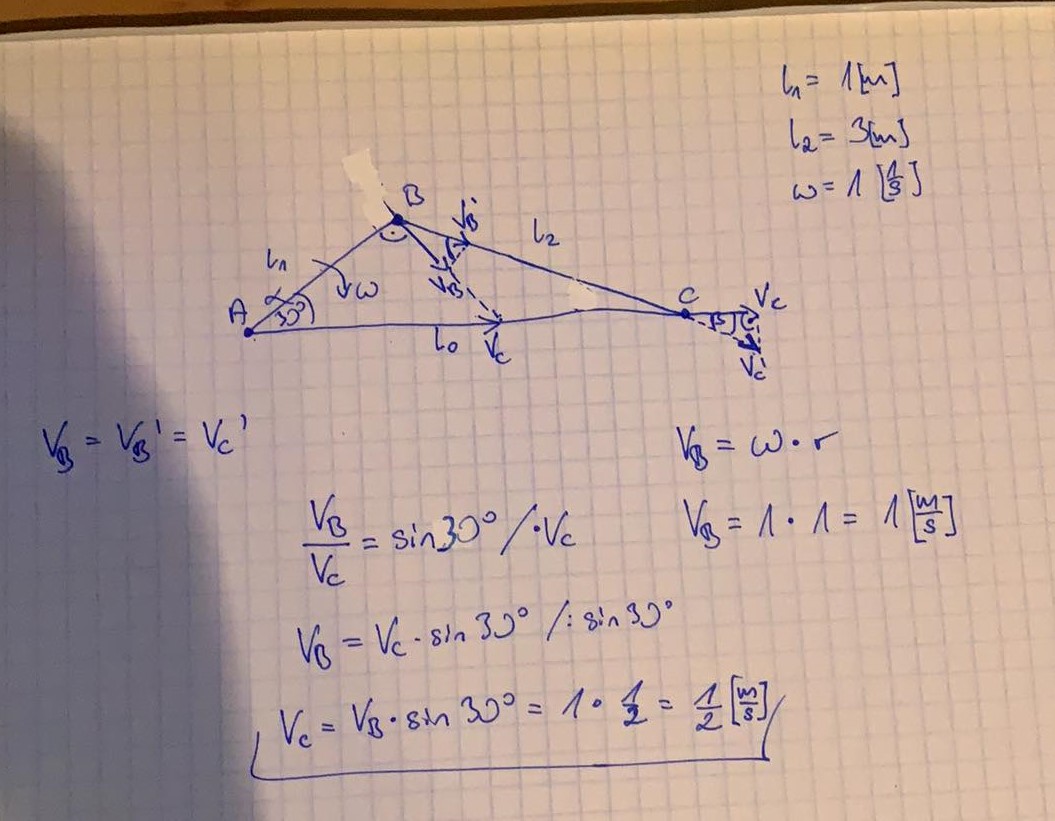 l₁ = 1 [m]
l₂ = 3 [m]
ω = 1 [1/s]
B
V_B'
l₂
l₁
ω
V_B
A
α
30°
C
V_C'
β
l₀
V_C
V_C
V_B = V_B' = V_C'
V_B = ω · r
V_B / V_C = sin 30° / · V_C
V_B = 1 · 1 = 1 [m/s]
V_B = V_C · sin 30° / : sin 30°
V_C = V_B · sin 30° = 1 · 1/2 = 1/2 [m/s]